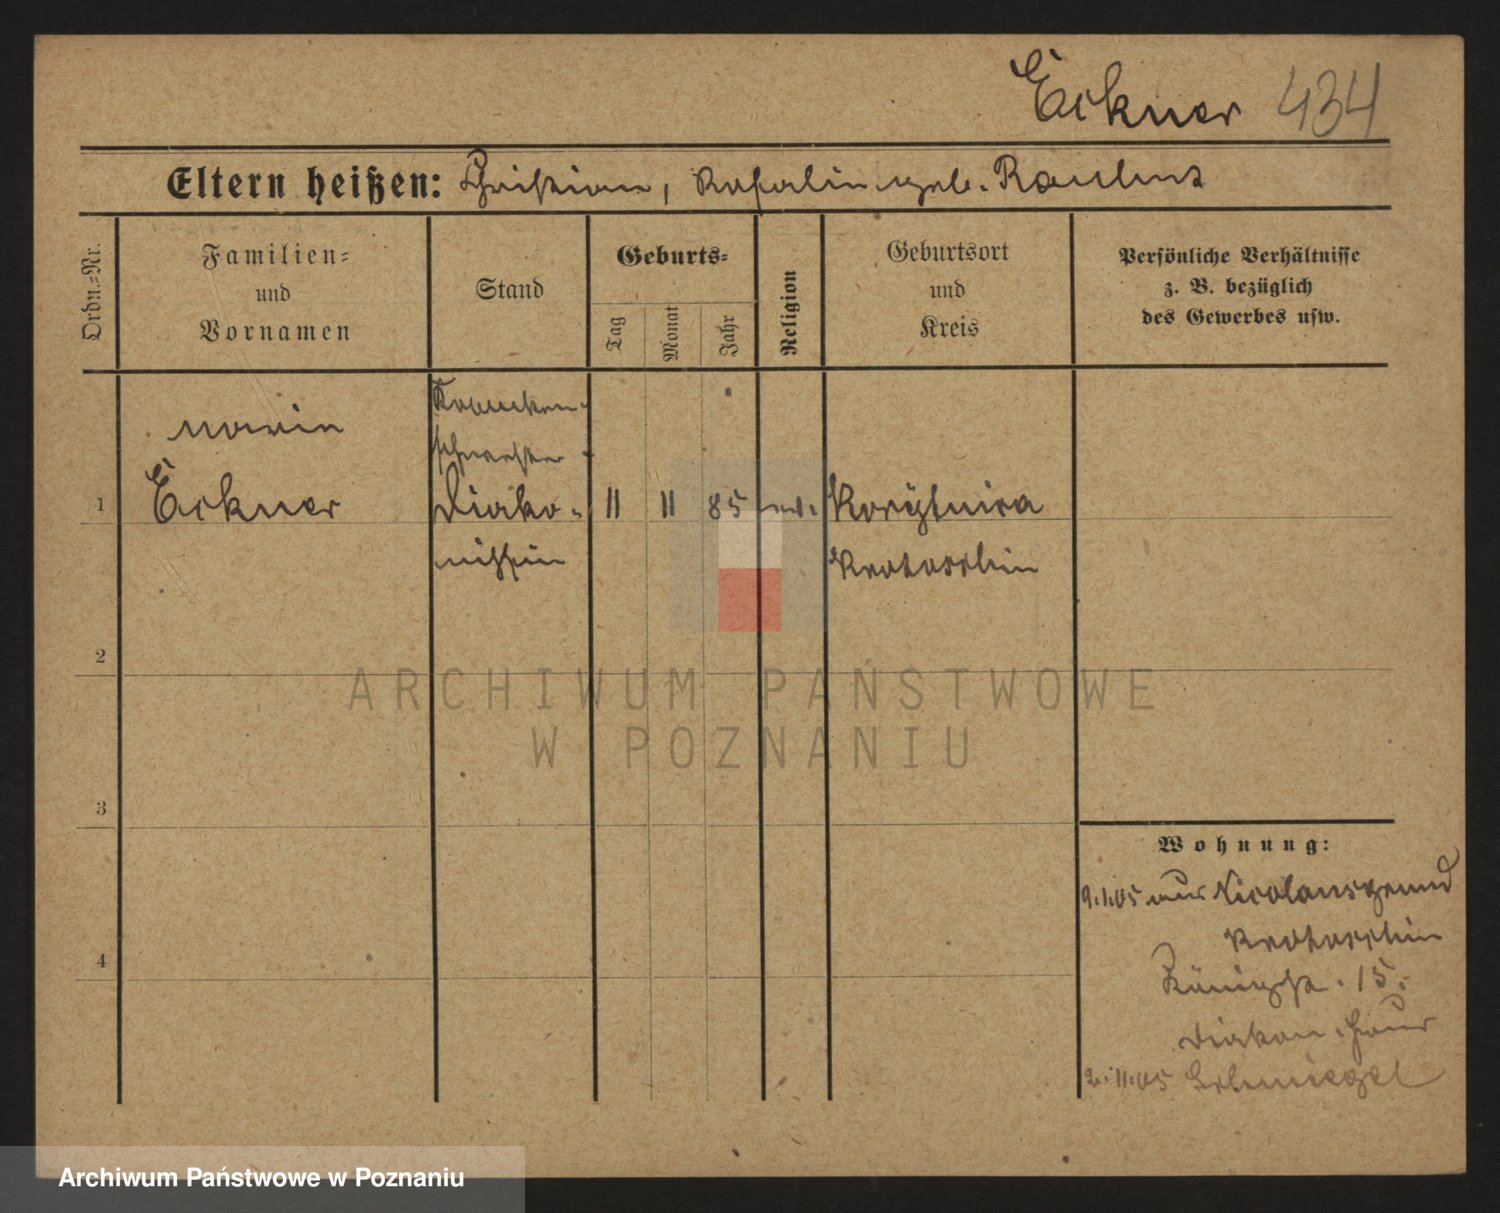 Eckner 434
Eltern heißen: Christian, Rosalin geb.
Ordn.-Nr.
Familien-
und
Vornamen
Stand
Geburts-
Tag
Monat
Jahr
Religion
Geburtsort
und
Kreis
Persönliche Verhältnisse
z. B. bezüglich
des Gewerbes usw.
Kranken-
Marie
schwester -
1 Eckner Diako- 11 11 85 ev. Korytnica
nissin Krotoschin
2
ARCHIWUM PAŃSTWOWE
W POZNANIU
3
Wohnung:
9.1.05 aus Nicolausgrund
Krotoschin
4
Königstr. 15.
Diakon. Haus
2.11.05 Schmiegel
Archiwum Państwowe w Poznaniu